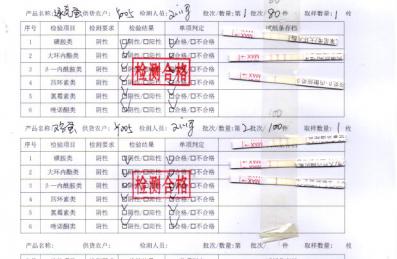 产品名称: 蛋 供货农户: y005 检测人员: 批次/数量:第 1 批次/ 80 件 取样数量: 1 枚
序号 检验项目 检测要求 检验结果 单项判定 试纸条存档
1 磺胺类 阴性 ☑阴性/□阳性 ☑合格/□不合格
2 大环内酯类 阴性 ☑阴性/□阳性 ☑合格/□不合格
3 β-一内酰胺类 阴性 阴性/□阳性 合格/□不合格
4 四环素类 阴性 阴性/□阳性 合格/□不合格
5 氯霉素类 阴性 ☑阴性/□阳性 ☑合格/□不合格
6 喹诺酮类 阴性 ☑阴性/□阳性 ☑合格/□不合格
检测合格
MAX
MAX
MAX
产品名称: 鸡蛋 供货农户: y005 检测人员: 批次/数量:第 2 批次/ 100 件 取样数量: 1 枚
序号 检验项目 检测要求 检验结果 单项判定
1 磺胺类 阴性 ☑阴性/□阳性 ☑合格/□不合格
2 大环内酯类 阴性 ☑阴性/□阳性 ☑合格/□不合格
3 β-一内酰胺类 阴性 阴性/□阳性 合格/□不合格
4 四环素类 阴性 阴性/□阳性 合格/□不合格
5 氯霉素类 阴性 ☑阴性/□阳性 ☑合格/□不合格
6 喹诺酮类 阴性 ☑阴性/□阳性 ☑合格/□不合格
检测合格
MAX
MAX
MAX
产品名称: 供货农户: 检测人员: 批次/数量:第 批次/ 件 取样数量: 枚